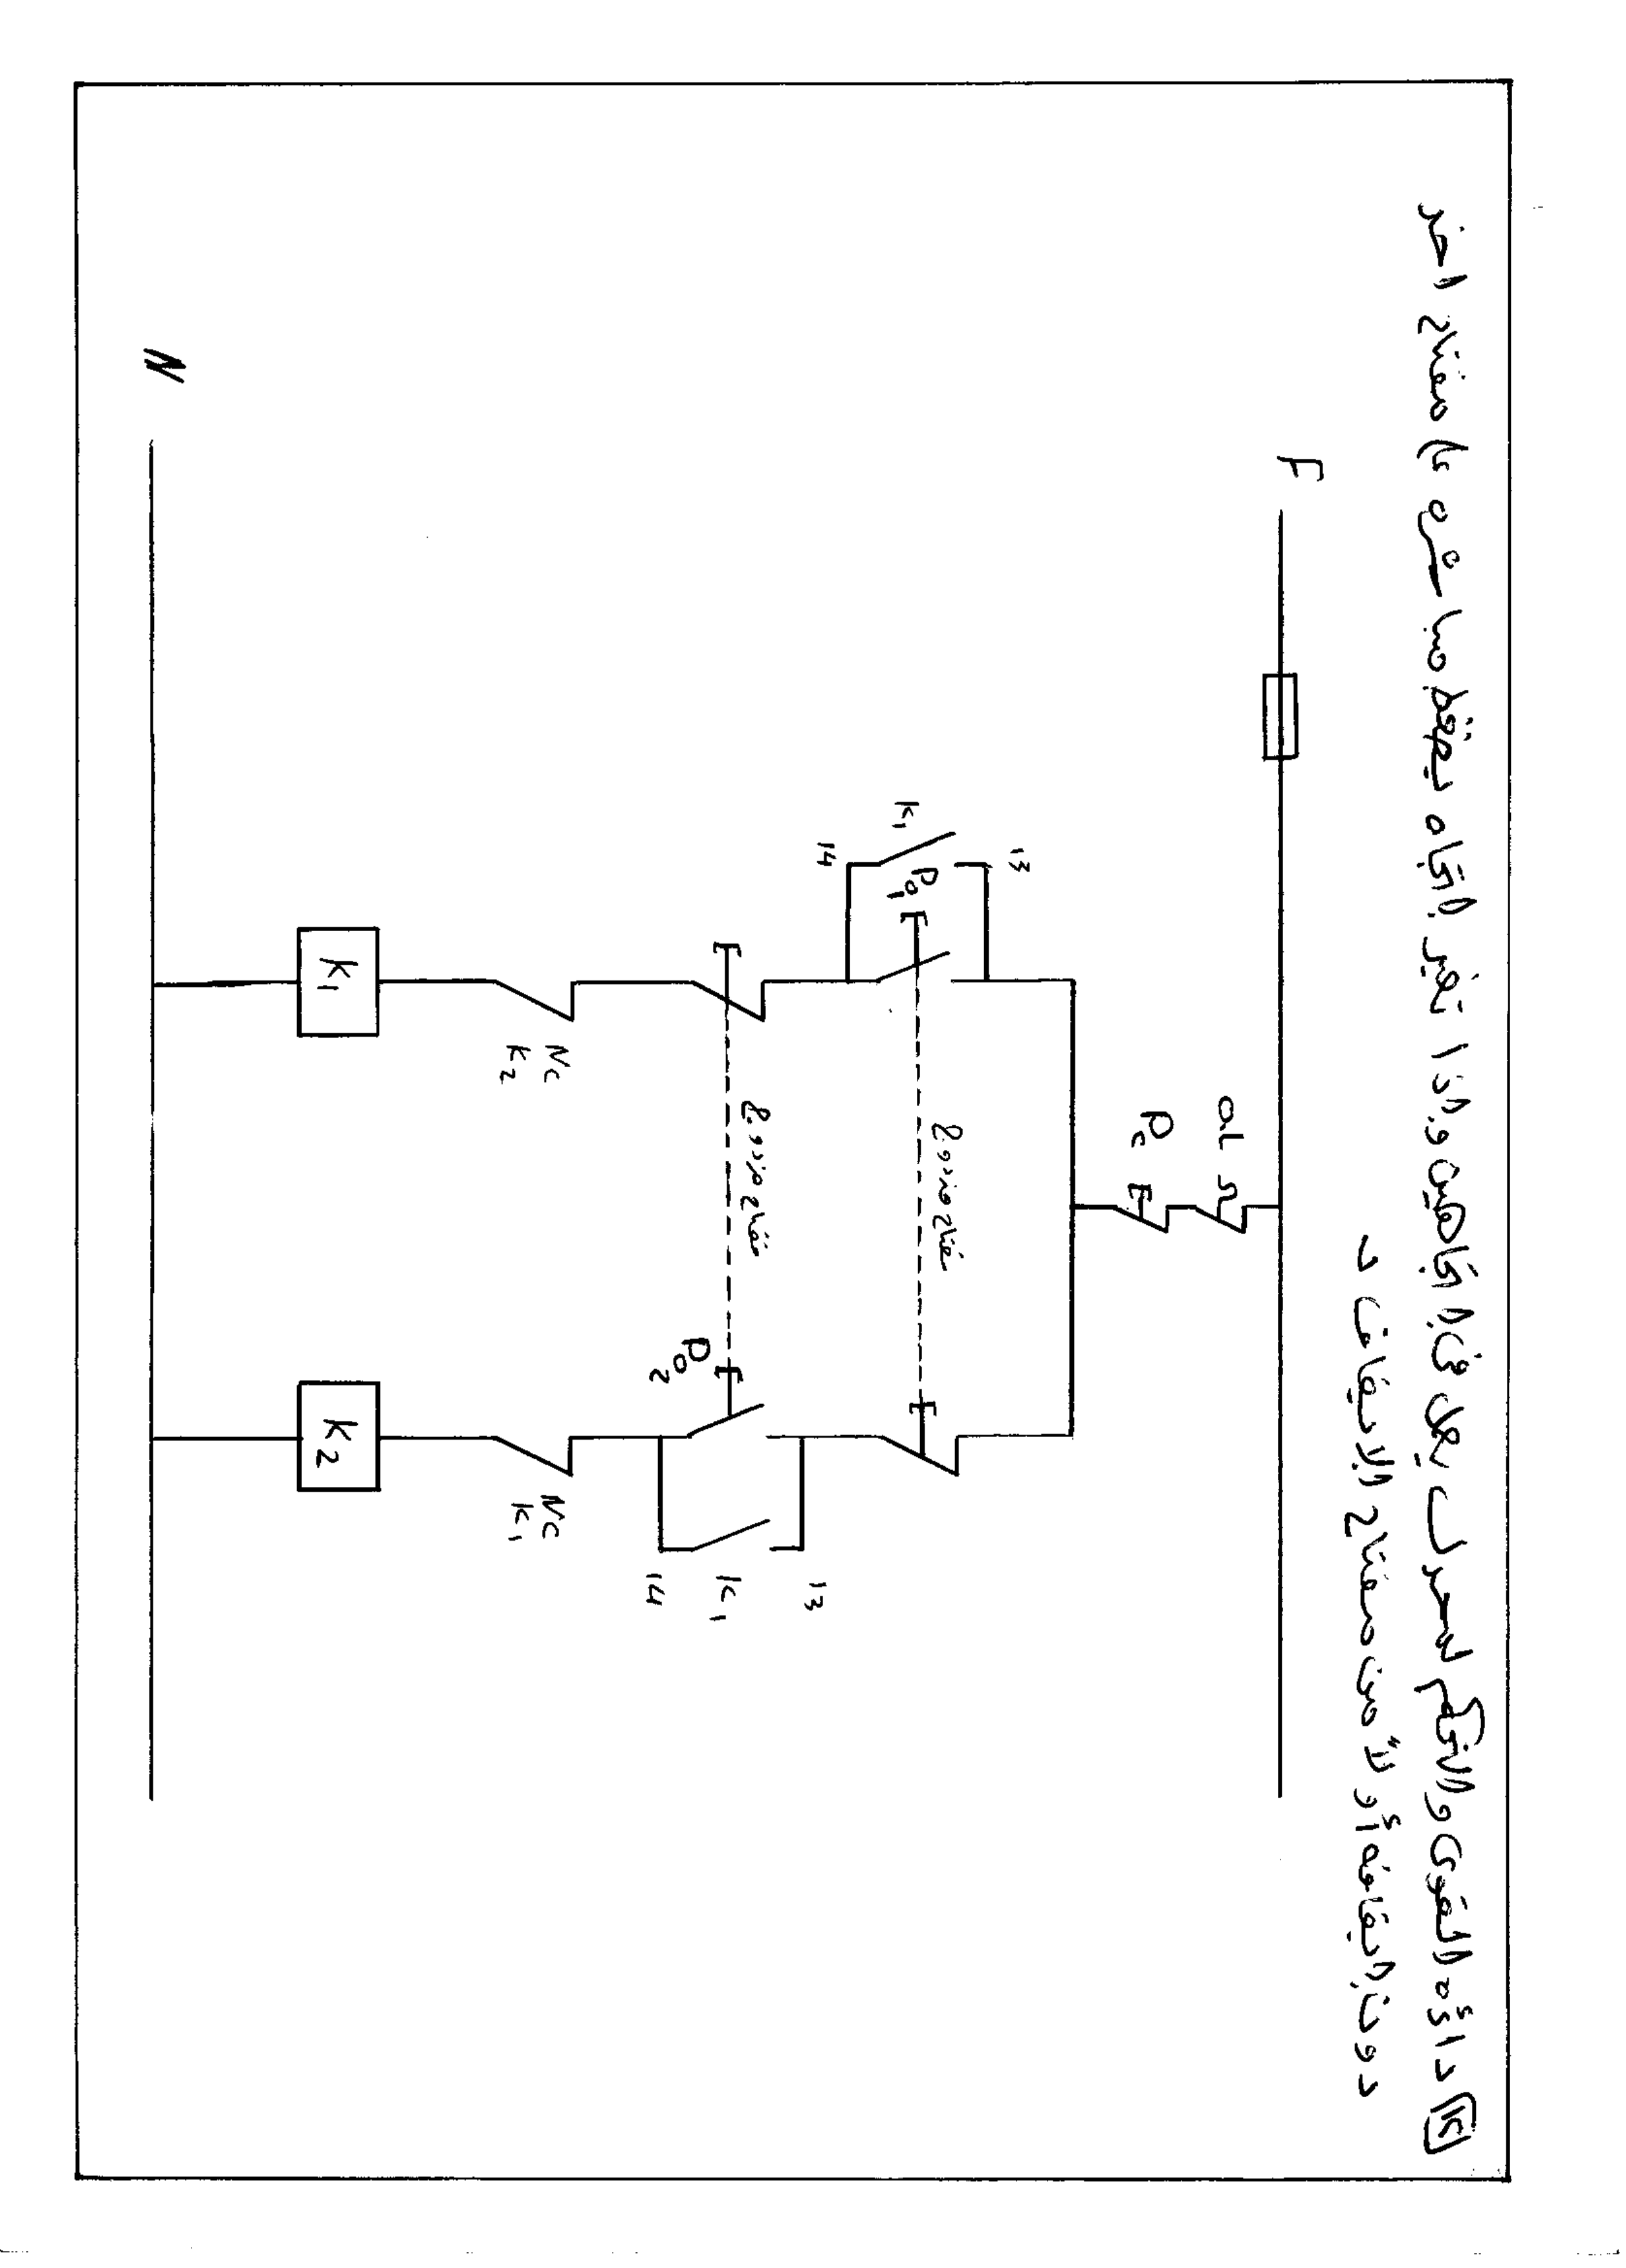 دائرة القوى والتحكم لمحرك يعمل فى اتجاهين وإذا تغير اتجاه يضغط مباشره على مفتاح اخر
دون إيقافه أولاً من مفتاح الايقاف
F
O.L
Pc
13
K1
14
Po1
مفتاح مزدوج
مفتاح مزدوج
Po2
13
K1
14
NC
K2
NC
K1
K1
K2
N